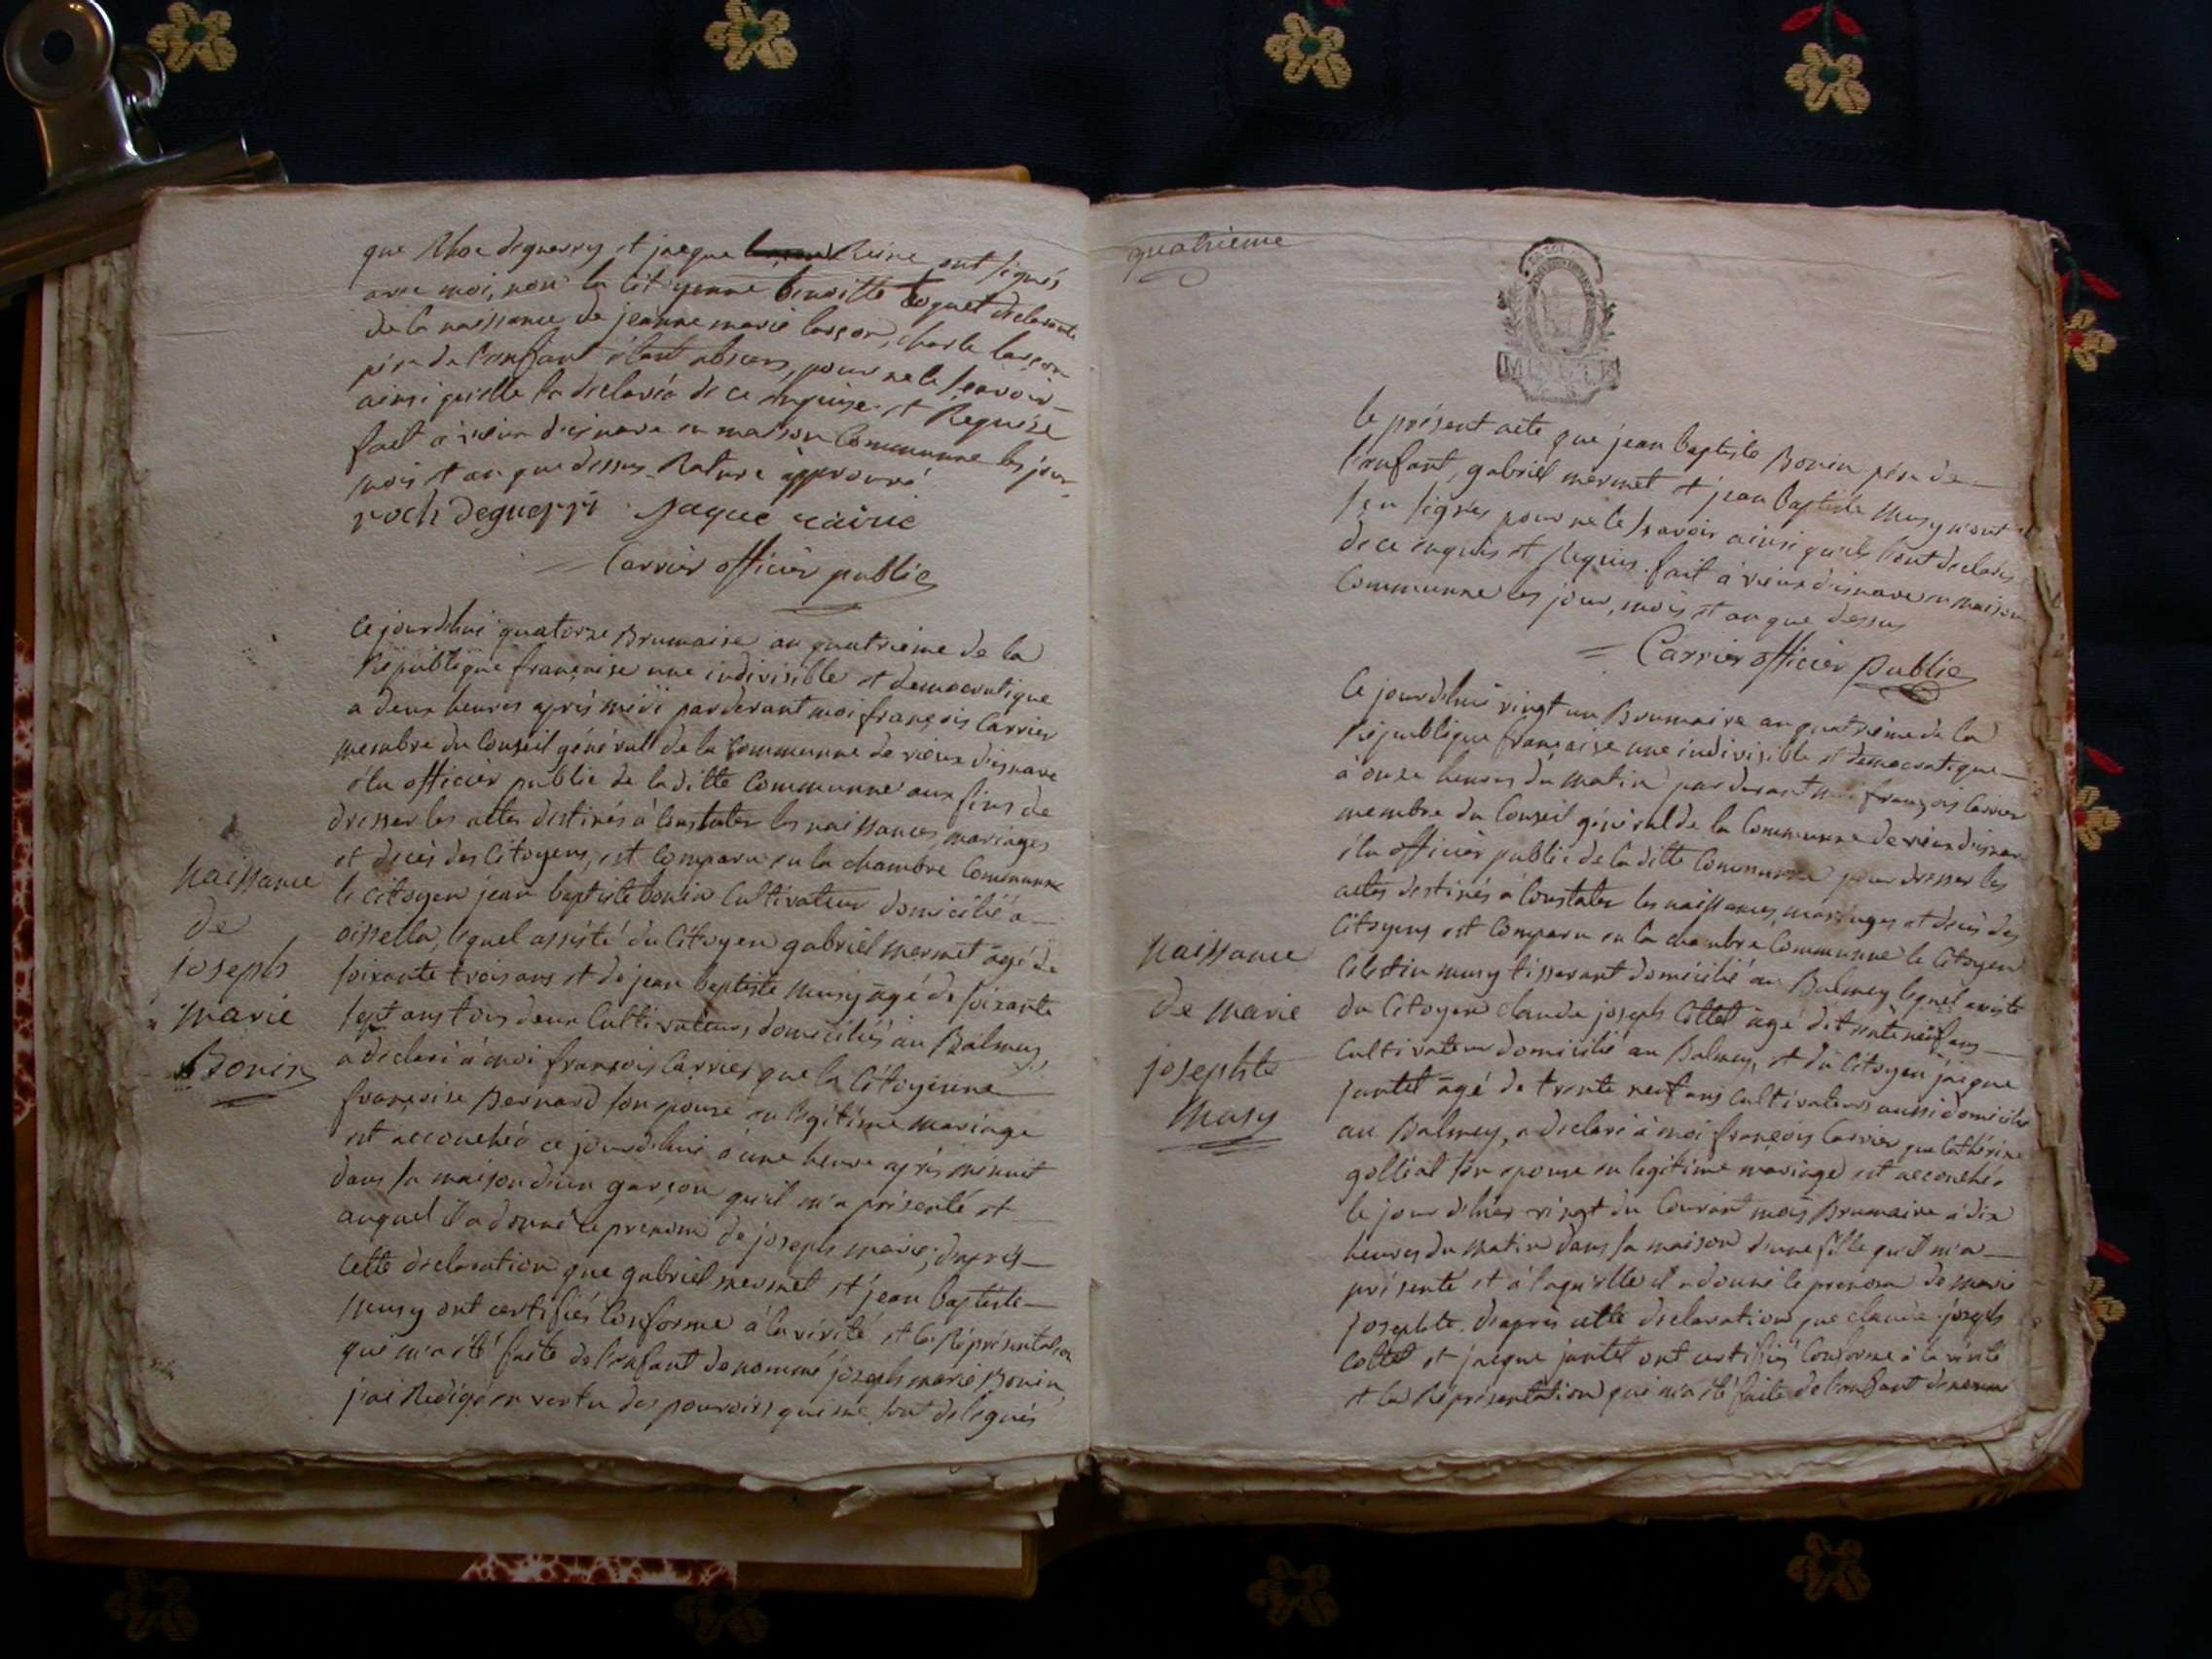 que Roc deguerry et jacque Reine ont signés
avec moi, non la Citoyenne benoitte declarante
de la naissance de jeanne marie larçon, charle larçon
père de l'enfant étant absens, pour ne le sçavoir
ainsi qu'elle l'a declaré de ce enquise et Requise
fait à vieux d'isnave en maison Commune les jour
mois et an que dessus. Rature approuvé
roch deguerri jaque raine
Carrier officier public
Ce jourd'hui quatorze Brumaire an quatrieme de la
République française une indivisible et democratique
a deux heures après midi pardevant moi françois Carrier
membre du Conseil général de la Commune de vieux d'isnave
élu officier public de la ditte Commune aux fins de
dresser les actes destinés à Constater les naissances, mariages
et decès des Citoyens, est Comparu en la chambre Commune
le citoyen jean baptiste bonin Cultivateur domicilié a
oissella, lequel assisté du Citoyen gabriel mermet agé de
soixante trois ans et de jean baptiste musy agé de soixante
sept ans tous deux Cultivateurs domiciliés au Balmey,
a declaré à moi françois Carrier que la Citoyenne
françoise Bernard son epouse en legitime mariage
est accouchée ce jourd'hui à une heure après minuit
dans sa maison d'un garçon qu'il m'a présenté et
auquel il a donné le prenom de joseph marie; d'après
cette declaration que gabriel mermet et jean baptiste
musy ont certifiés Conforme à la vérité et la Réprésentation
qui m'a été faite de l'enfant denommé joseph marie Bonin,
j'ai Redigé en vertu des pouvoirs qui me sont delegués
Naissance
de
joseph
marie
Bonin
quatrieme
MINUTE
le présent acte que jean baptiste Bonin père de
l'enfant, gabriel mermet et jean baptiste musy n'ont
signés pour ne le sçavoir ainsi qu'ils l'ont declarés
de ce enquis et Requis. fait à vieux d'isnave en maison
Commune les jour, mois et an que dessus
Carrier officier public
Ce jourd'hui vingt un Brumaire an quatrième de la
République française une indivisible et democratique
à onze heures du matin pardevant moi françois Carrier
membre du Conseil général de la Commune de vieux d'isnave
élu officier public de la ditte Commune pour dresser les
actes destinés à Constater les naissances, mariages et decès des
Citoyens est Comparu en la chambre Commune le Citoyen
Celestin musy tisserant domicilié au Balmey lequel assisté
du Citoyen claude joseph Collet agé de trente neuf ans
Cultivateur domicilié au Balmey, et du Citoyen jacque
juntet agé de trente neuf ans Cultivateurs aussi domicilié
au Balmey, a declaré à moi françois Carrier que Cathérine
golliat son epouse en legitime mariage est accouchée
le jour d'hier vingt du Courant mois Brumaire à dix
heures du matin dans sa maison d'une fille qu'il m'a
présenté et à laquelle il a donné le prenom de marie
josephte. d'après cette declaration que claude joseph
Collet et jacque juntet ont certifiés Conforme à la vérité
et la Réprésentation qui m'a été faite de l'enfant denommé
Naissance
de marie
josephte
Musy